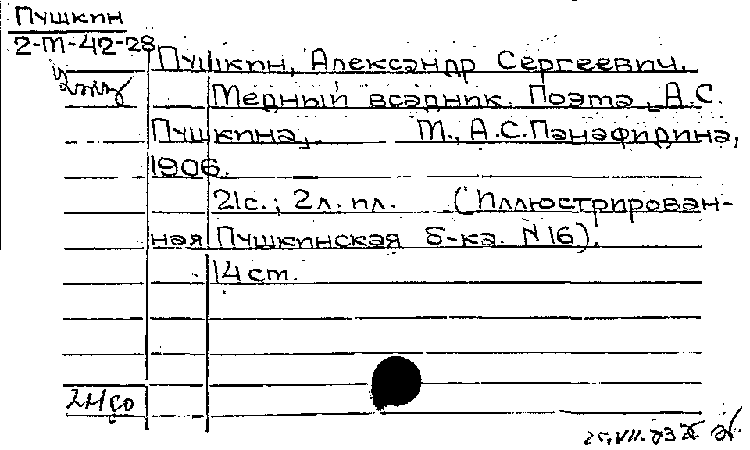 Пушкин
2-М-42-28
Пушкин, Александр Сергеевич.
Медный всадник. Поэма А.С.
Пушкина, М., А.С.Панафидина,
1906.
21с.; 2л. ил. (Иллюстрирован-
ная Пушкинская б-ка. N 16).
14 см.